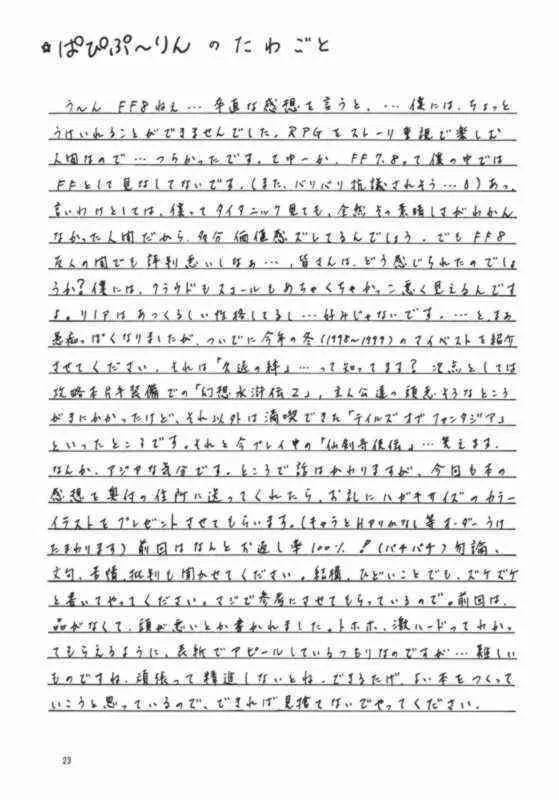 ☆ぱぴぷ〜りんのたわごと
う〜ん FF8ねぇ… 率直な感想を言うと、… 僕には、ちょっと
うけいれることができませんでした。RPGをストーリー重視で楽しむ
人間なので… つらかったです。てゆーか、FF7、8って僕の中では
FFとして見なしてないです。(また、バリバリ抗議されそう…6)あっ、
言いわけとしては、僕ってタイタニック見ても、全然その素晴しさがわかん
なかった人間だから、多分価値感ズレてるんでしょう。でもFF8
友人の間でも評判悪いしなぁ…、皆さんは、どう感じられたのでしょ
うか?僕には、クラウドもスコールもめちゃくちゃかっこ悪く見えるんです
よ。リノアはあつくるしい性格してるし…好みじゃないです。…と、まぁ
愚痴っぽくなりましたが、ついでに今年の冬(1998〜1999)のマイベストを紹介
させてください、それは「久遠の絆」…って知ってます?次点としては
攻略本片手装備での「幻想水滸伝2」、主人公達の頭悪そうなところ
がきにかかったけど、それ以外は満喫できた「テイルズオブファンタジア」
といったところです。それと今プレイ中の「仙剣奇侠伝」…笑えます。
なんか、アジアな気分です。ところで話はかわりますが、今回も本の
感想を奥付の住所に送ってくれたら、お礼にハガキサイズのカラー
イラストをプレゼントさせてもらいます。(キャラとHアリかなし等オーダーうけ
たまわります)前回はなんとお返し率100%!(パチパチ)勿論、
文句、苦情、批判も聞かせてください。結構、ひどいことでも、ズケズケ
と書いてやってください。マジで参考にさせてもらっているので。前回は、
品がなくて、頭が悪いとか書かれました。トホホ、激ハードってわかっ
てもらえるように、表紙でアピールしているつもりなのですが…難しい
ものですね。頑張って精進しないとね。できるだけ、よい本をつくって
いこうと思っているので、できれば見捨てないでやってください。
23